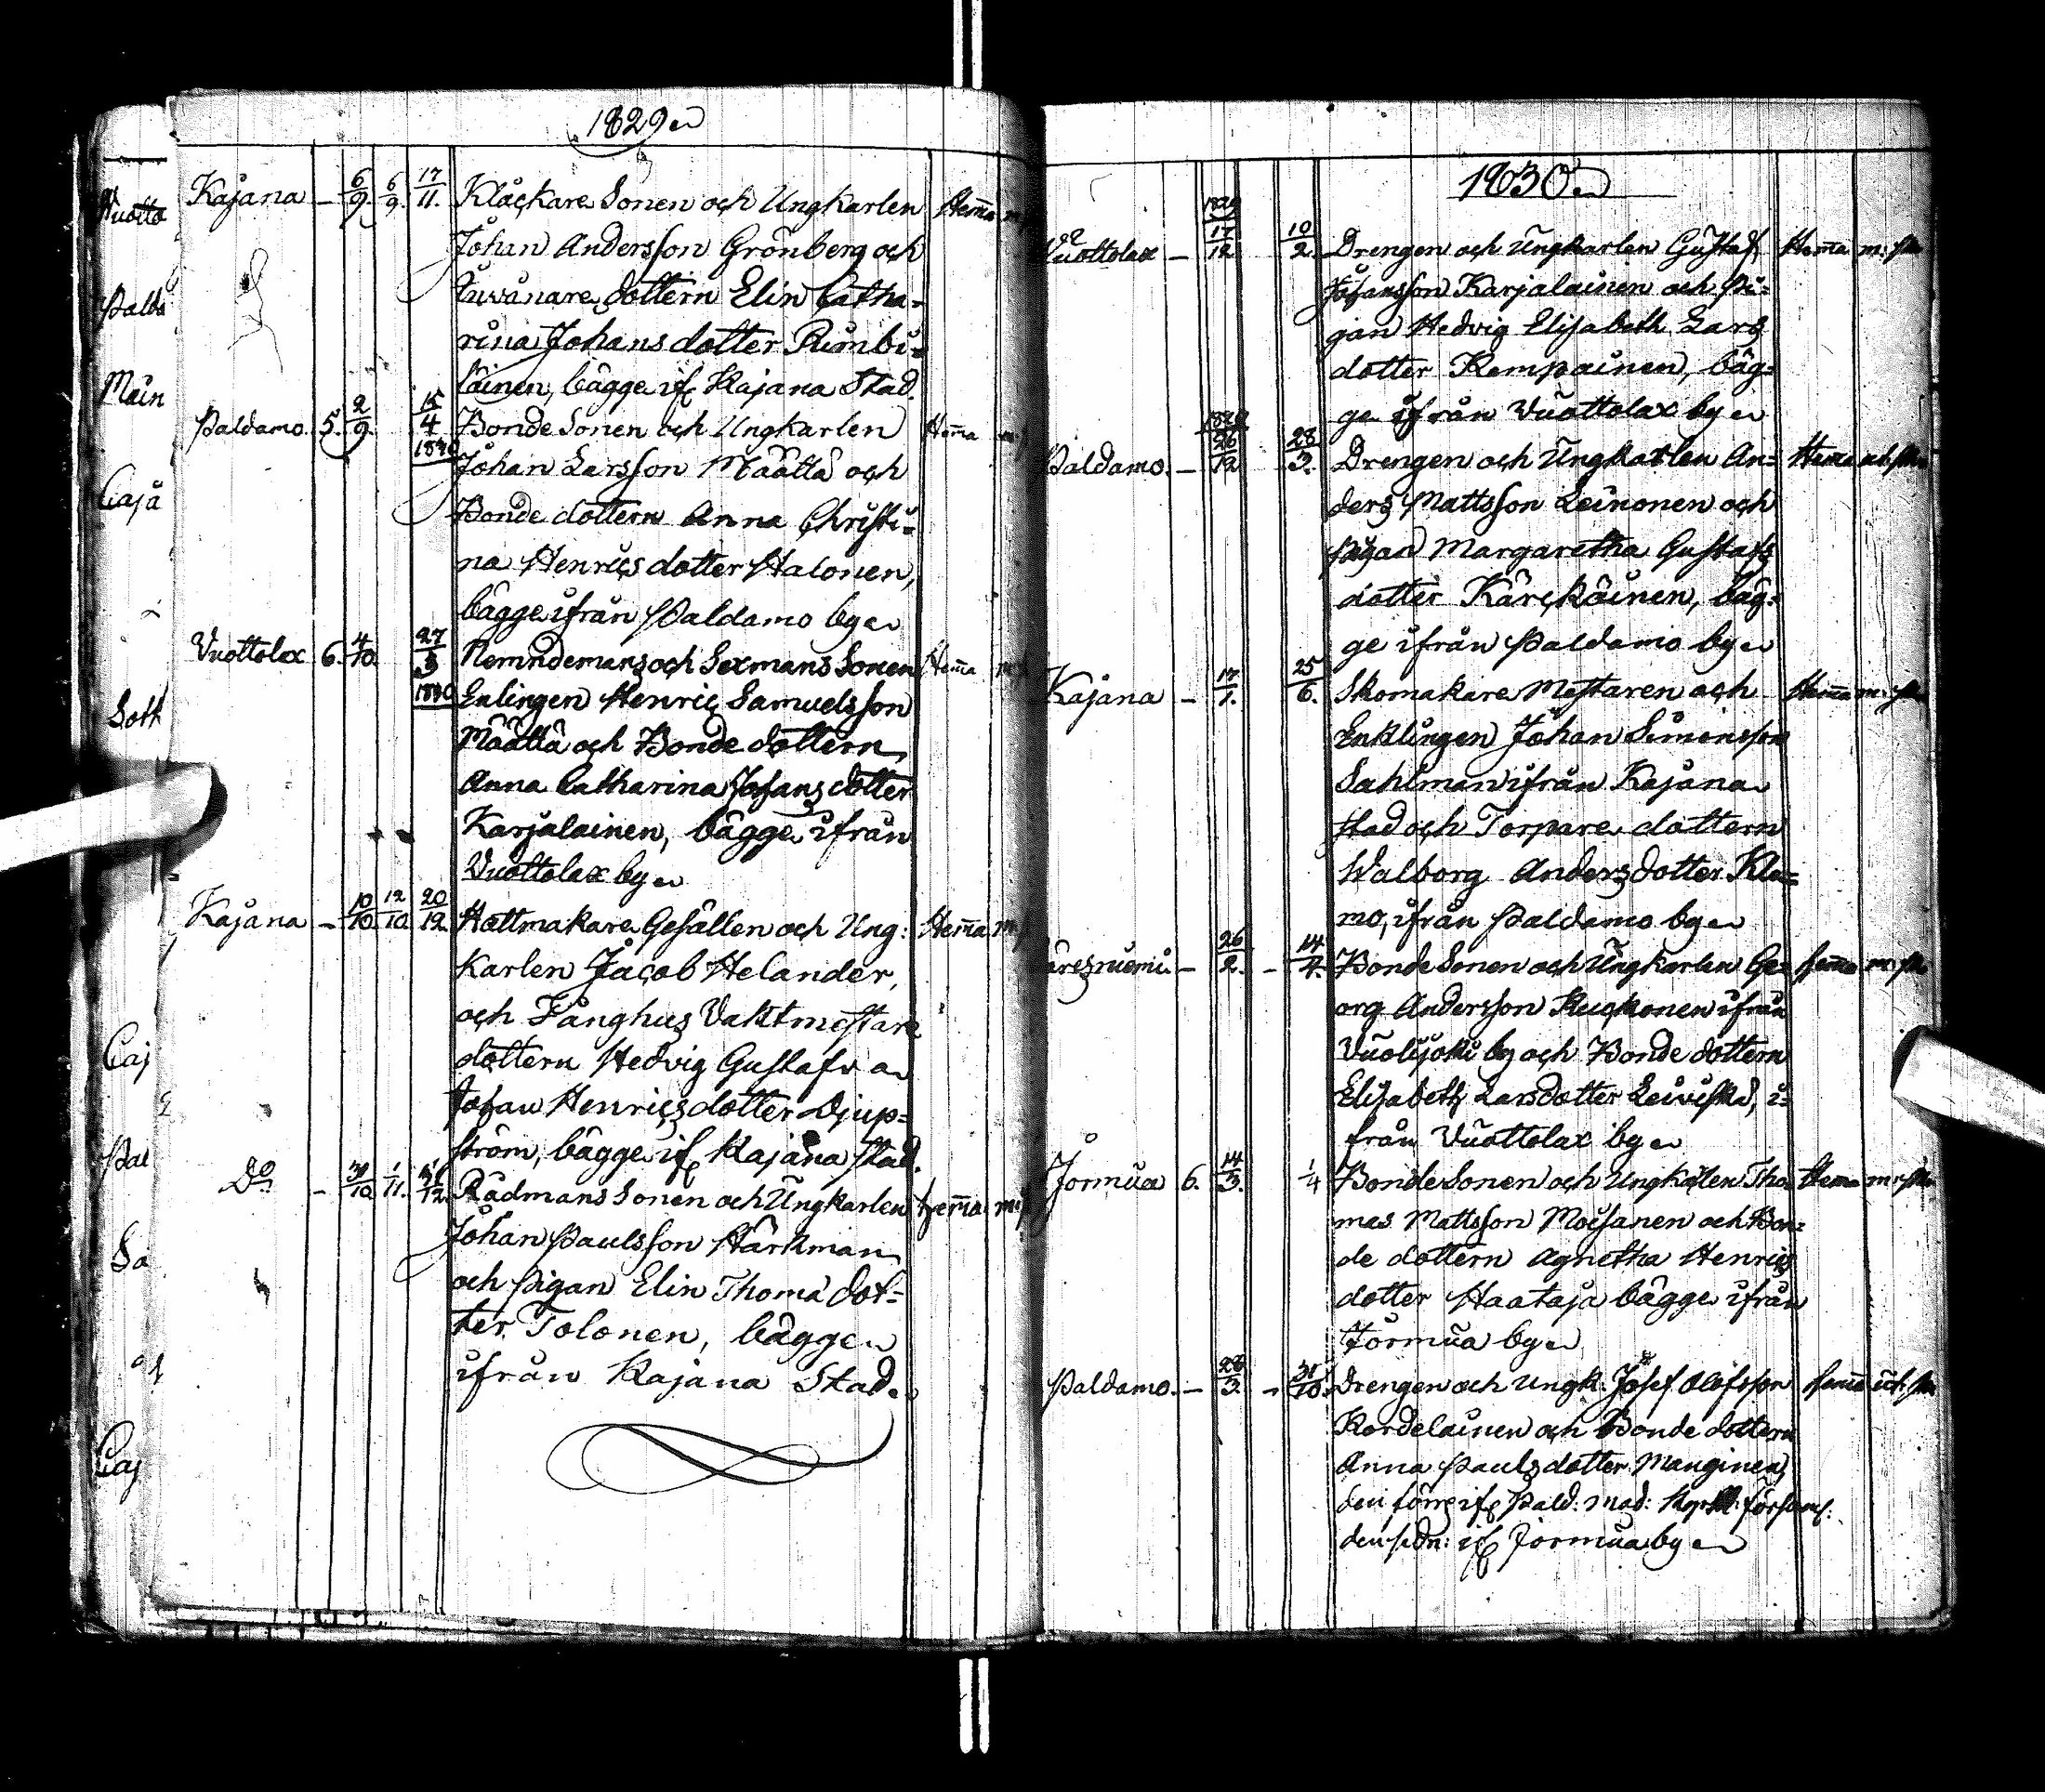 1829
Kajana – 6/9. 6/9. 17/11. Klåckare Sonen och Ungkarlen Hemma
Johan Andersson Grönberg och
dottern Elin Catha=
rina Johans dotter Rimbi=
läinen, bägge if. Kajana Stad.
Paldamo. 5. 2/9. 15/4 1830 Bonde Sonen och Ungkarlen Hemma
Johan Larsson Määttä och
Bonde dottern Anna Christi=
na Henrics dotter Halonen,
bägge ifrån Paldamo by
Vuottolax 6. 4/10. 27/3 1830 Nemndemans och Sexmans Sonen Hemma
Enlingen Henric Samuelsson
Määttä och Bonde dottern
Anna Catharina Johans dotter
Karjalainen, bägge ifrån
Vuottolax by
Kajana – 10/10. 12/10. 20/12. Hattmakare Gesällen och Ung: Hemma
karlen Jacob Helander,
och Fånghus Vaktmestare
dottern Hedvig Gustafva
Johan Henrics dotter Djup=
ström, bägge if. Kajana stad.
Do – 31/10. 1/11. 31/12. Rådmans Sonen och Ungkarlen hemma
Johan Paulsson Härkman
och Pigan Elin Thoma dot=
ter Tolonen, bägge
ifrån Kajana Stad
1830
Vuottolax – 1829 17/12 10/2. Drengen och Ungkarlen Gustaf Hemma m:
Johansson Karjalainen och Pi=
gan Hedvig Elisabeth Lars
dotter Kempainen, bäg=
ge ifrån Vuottolax by
Paldamo. – 1829 26/12 28/3. Drengen och Ungkarlen An= Hemma
ders Mattsson Leinonen och
Pigan Margaretha Gustafs
dotter Kärckäinen, bäg=
ge ifrån Paldamo by
Kajana – 17/1. 25/6. Skomakare Mestaren och Hemma m:
Enklingen Johan Simonsson
Sahlman ifrån Kajana
stad och Torpare dottern
Walborg Anders dotter Kle=
mo, ifrån Paldamo by
äresniemi – 26/2. – 14/4. Bonde Sonen och Ungkarlen Ge= hemma m:
org Andersson Kuckonen ifrån
Vuolijoki by och Bonde dottern
Elisabeth Larsdotter Leiviskä, i=
från Vuottolax by
Jormua 6. 14/3. 1/4 Bonde Sonen och Ungkarlen Tho= Hemma m:
mas Mattsson Moisanen och Bon=
de dottern Agnetha Henrics
dotter Haataja bägge ifrån
Jormua by
Paldamo. – 28/3. – 31/10. Drengen och Ungk. Josef Olofsson hemma
Kordelainen och Bonde dottern
Anna Pauls dotter Manginen,
den förre if. Pald: mod: församl:
den sedn: if Jormua by
Vuotto
Palda
Main
Cajä
Sott
Caj
Pal
So
Caj